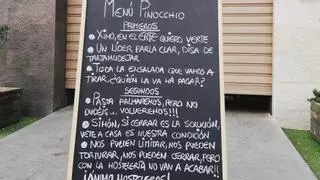 MENÚ PINOCCHIO
PRIMEROS
● XIMO, EN EL ERTE QUIERO VERTE
● UN LÍDER, PARLA CLAR, DISA DE
TARTAMUDEJAR
● TODA LA ENSALADA QUE VAMOS A
TIRAR ¿QUIÉN LA VA HA PAGAR?
SEGUNDOS
● PASTA PALMAREMOS, PERO NO
DUDÉIS... VOLVEREMOS!!!
● SIMÓN, SI CERRAR ES LA SOLUCIÓN,
VETE A CASA ES NUESTRA CONDICIÓN
● NOS PUEDEN LIMITAR, NOS PUEDEN
TORTURAR, NOS PUEDEN CERRAR, PERO
CON LA HOSTELERÍA NO VAN A ACABAR!!
¡ÁNIMO HOSTELEROS!